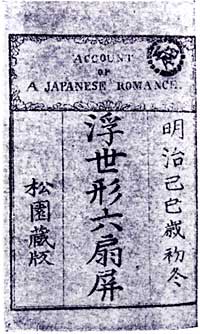 ACCOUNT
OF
A JAPANESE ROMANCE.
明治己巳歳初冬
浮世形六扇屏
松園藏版